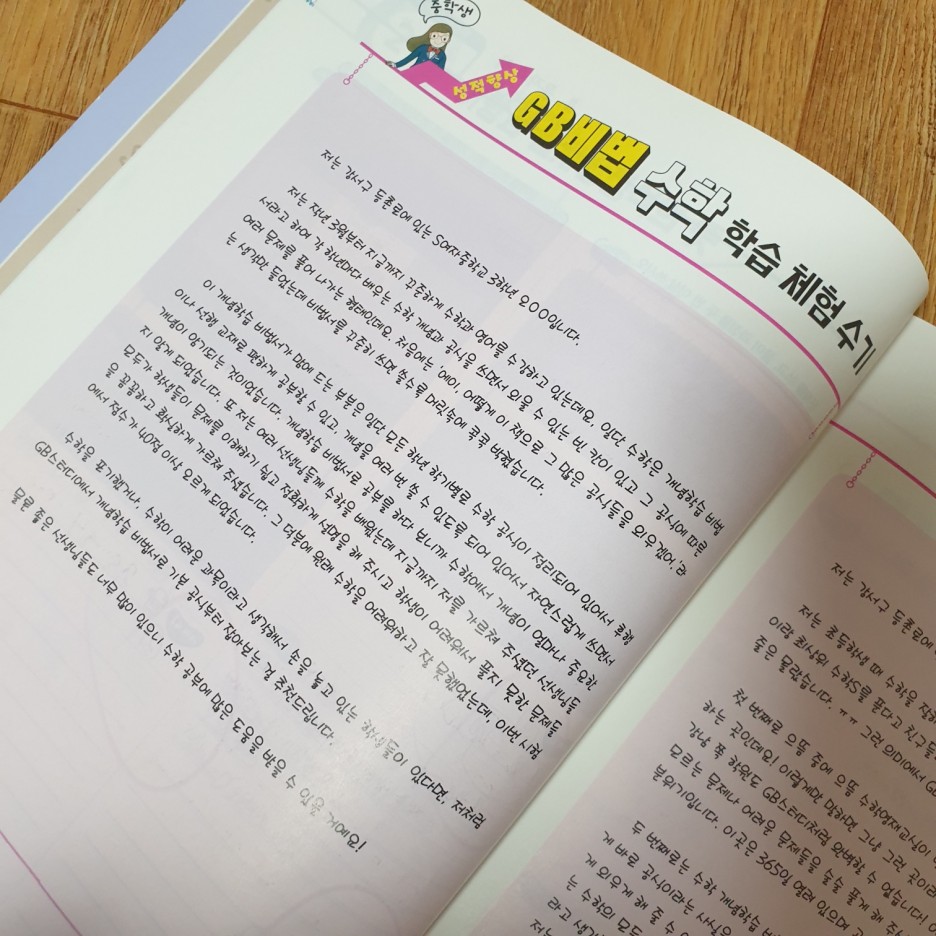 중학생
성적향상
GB비법 수학 학습 체험 수기
저는 강서구 등촌로에 있는 S여자중학교 3학년 오OOO입니다.
저는 작년 3월부터 지금까지 꾸준하게 수학과 영어를 수강하고 있는데요, 일단 수학은 개념학습 비법
서라고 하여 각 학년마다 배우는 수학 개념과 공식을 쓰면서 외울 수 있는 빈 칸이 있고 그 공식에 따른
여러 문제를 풀어 나가는 형태인데요, 처음에는 '에이, 어떻게 이 책으로 그 많은 공식들을 외우겠어.'라
는 생각만 들었는데 비법서를 꾸준히 쓰면 쓸수록 머릿속에 콕콕 박혔습니다.
이 개념학습 비법서가 맘에 드는 부분은 일단 모든 학년 학기별로 수학 공식이 정리되어 있어서 후행
이나 선행 교재로 편하게 공부할 수 있고, 개념을 여러 번 쓸 수 있도록 되어 있어서 자연스럽게 쓰면서
개념이 암기되는 것이었습니다. 개념학습 비법서로 공부를 하다 보니까 수학에서 개념이 얼마나 중요한
지 알게 되었습니다. 또 저는 여러 선생님들께 수학을 배웠는데 지금까지 저를 가르쳐 주셨던 선생님들
모두가 학생들이 문제를 이해하기 쉽고 정확하게 설명을 해 주시고 학생이 어려워서 풀지 못한 문제들
을 꼼꼼하고 확실하게 가르쳐 주셨습니다. 그 덕분에 원래 수학을 어려워하고 잘 못했었는데, 이번 시험
에서 점수가 40점 이상 오르게 되었습니다.
수학을 포기했거나, 수학이 어려운 과목이라고 생각해서 손을 놓고 있는 학생들이 있다면, 저처럼
GB스터디에서 개념학습 비법서로 기본 공식부터 잡아보는 걸 추천드립니다.
물론 좋은 선생님들도 너무 많이 있으니 수학 공부에 많은 도움을 받을 수 있을 거예요!
저는 강서구 등촌로에
저는 초등학생 때 수학을 잘하
이랑 최상위 수학S를 푼다고 친구들
줄은 몰랐습니다. ㅠㅠ 그런 의미에서 GB
첫 번째로 으뜸 중에 으뜸 수학영재교실이
하는 곳인데요! 이렇게만 말하면 그냥 그런 곳이라
강남 쪽 학원도 GB스터디처럼 완벽할 수 없습니다!
모르는 문제나 어려운 문제들을 술술 풀게 해 주
분위기입니다. 이곳은 365일 열려 있으며
두 번째로는 수학 개념학습 비
게 바로 공식이라는 사실을
게 외우게 해 줄 수
는 수학의 모든
라고 생각
저는